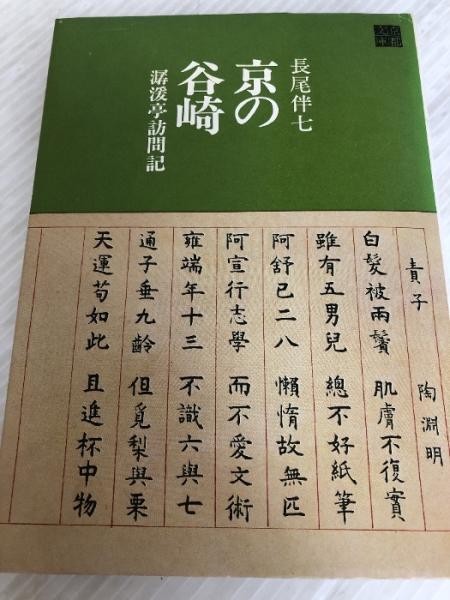 長尾伴七
京の
谷崎
潺湲亭訪問記
責子 陶淵明
白髮被兩鬢 肌膚不復實
雖有五男兒 總不好紙筆
阿舒已二八 懶惰故無匹
阿宣行志學 而不愛文術
雍端年十三 不識六與七
通子垂九齡 但覓梨與栗
天運苟如此 且進杯中物